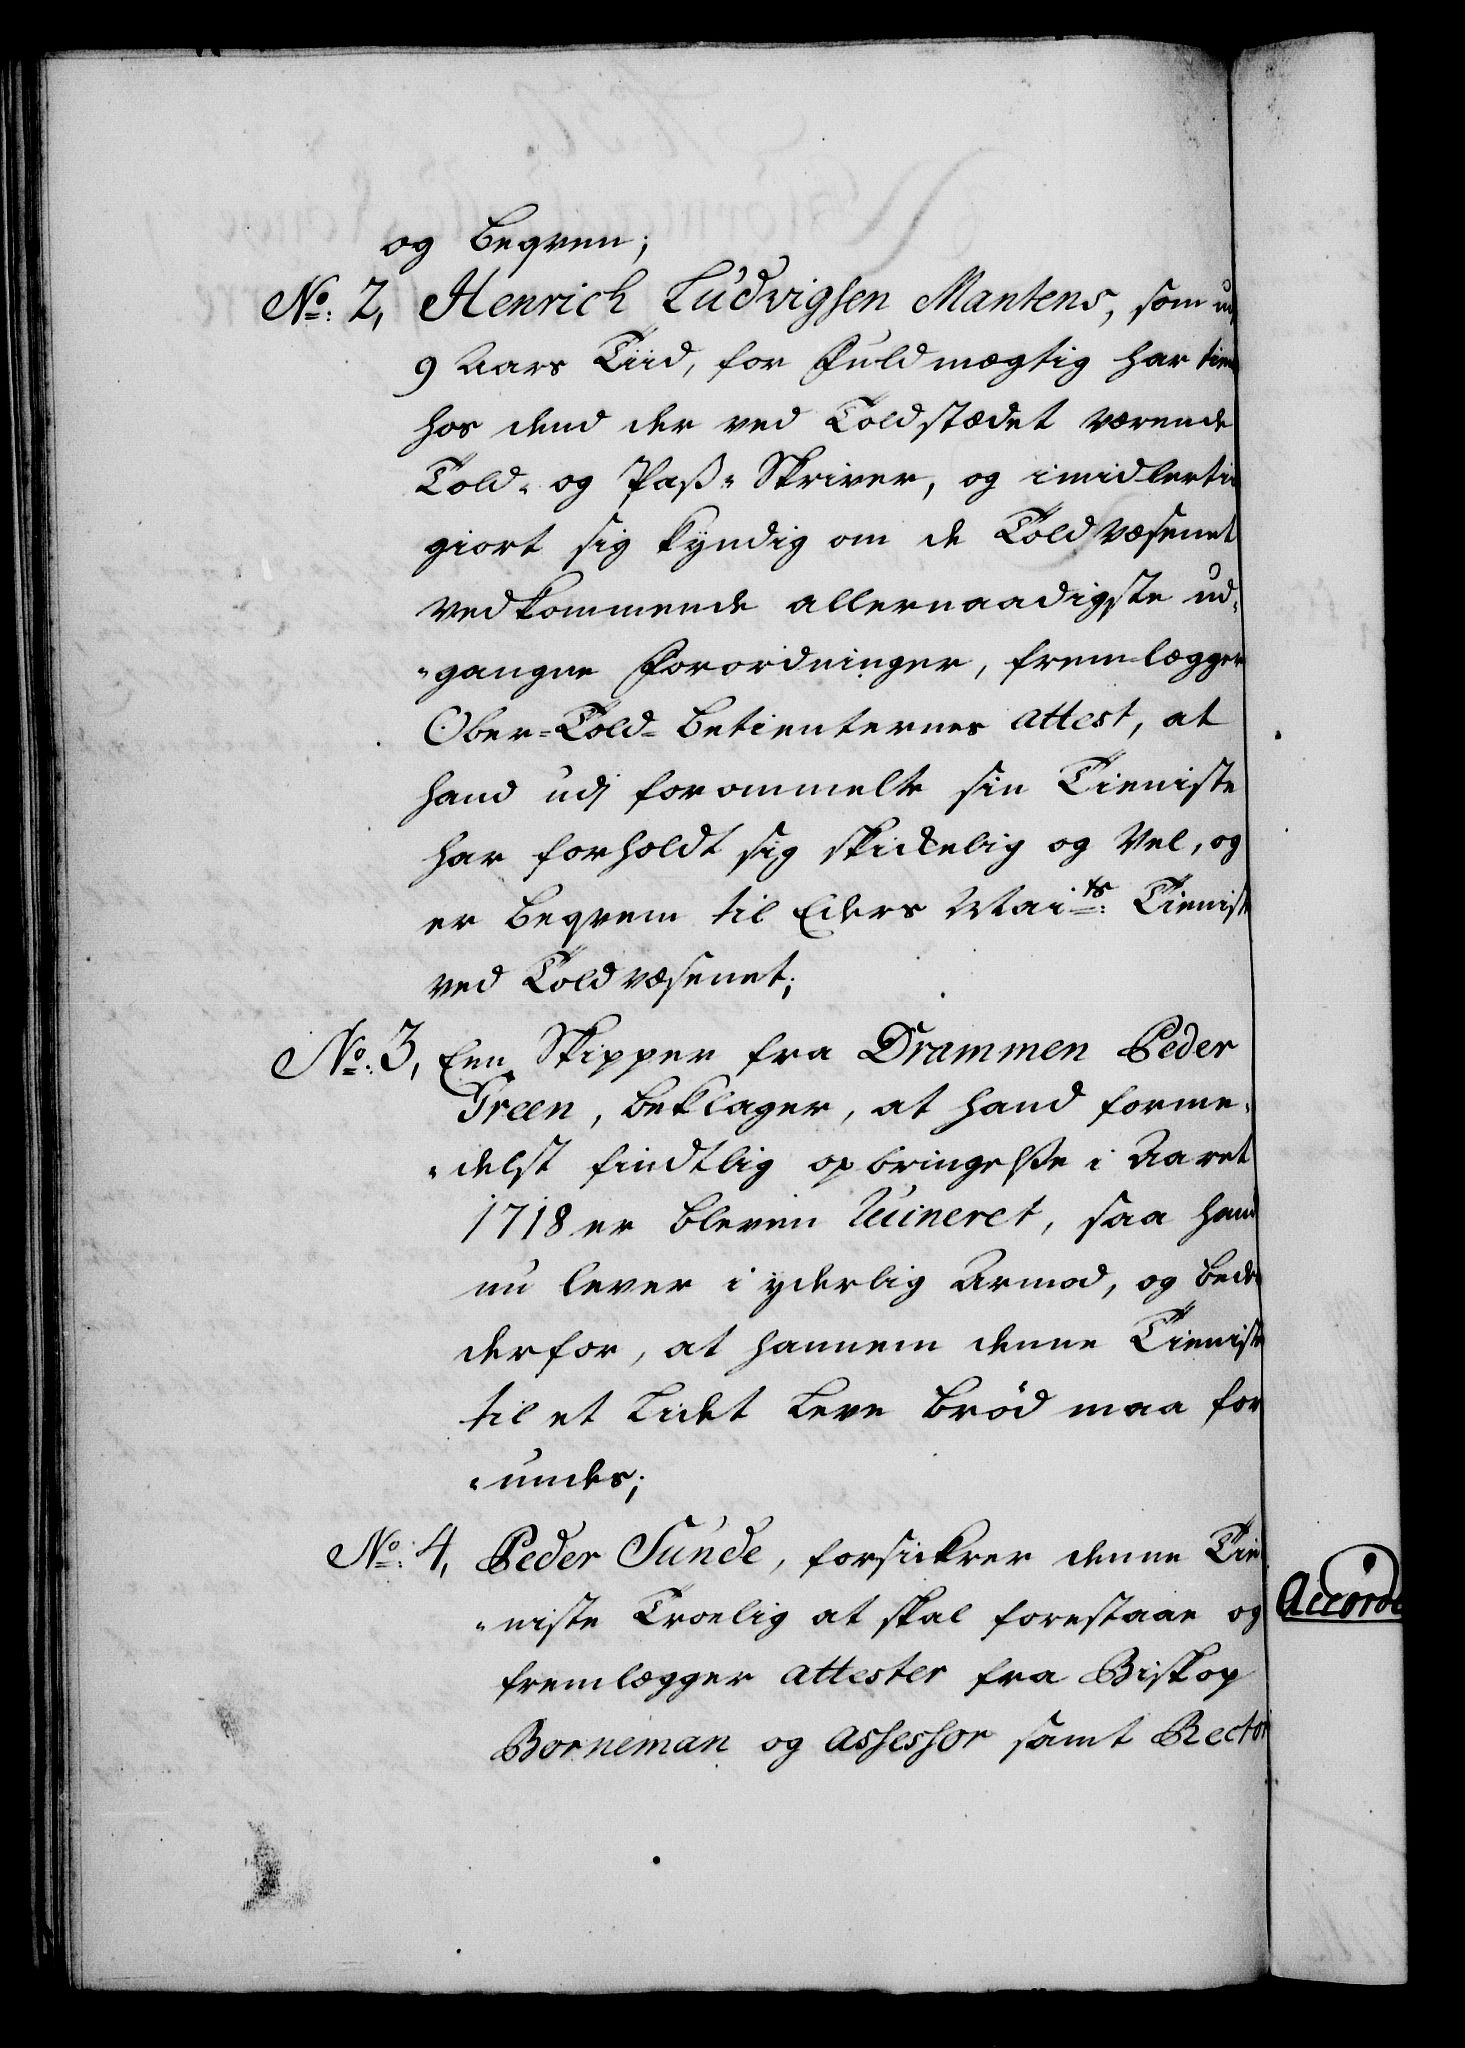 og beqvem;
No: 2, Henrich Ludvigsen Mantens, som ud
9 Aars Tiid, for Fuldmægtig har tien
hos dend der ved Toldstædet værende
Told- og Pass-Skriver, og imidlertii
giort sig kyndig om de Toldvæsenet
vedkommende allernaadigste ud-
-gangne Forordninger, fremlægger
Ober-Told-betienternes attest, at
hand udj forommelte sin Tieniste
har forholdt sig skickelig og vel, og
er beqvem til Eders Maits: Tienist
ved Toldvæsenet;
No: 3, Een Skipper fra Drammen Peder
Green, beklager, at hand forme-
-delst findtlig opbringelsse i Aaret
1718 er bleven Ruineret, saa hand
nu lever i yderlig Armod, og bede
derfor, at hannem denne Tieniste
til et Lidet Leve brød maa for
-undes;
No: 4, Peder Sunde, forsickrer denne Tie
-niste Troelig at skal forestaae og
fremlægger attester fra Biskop
Borneman og Assessor samt Rector
Accorde